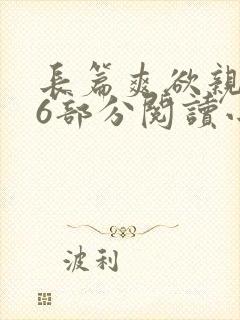 長篇爽欲親
6部分閱讀
波利